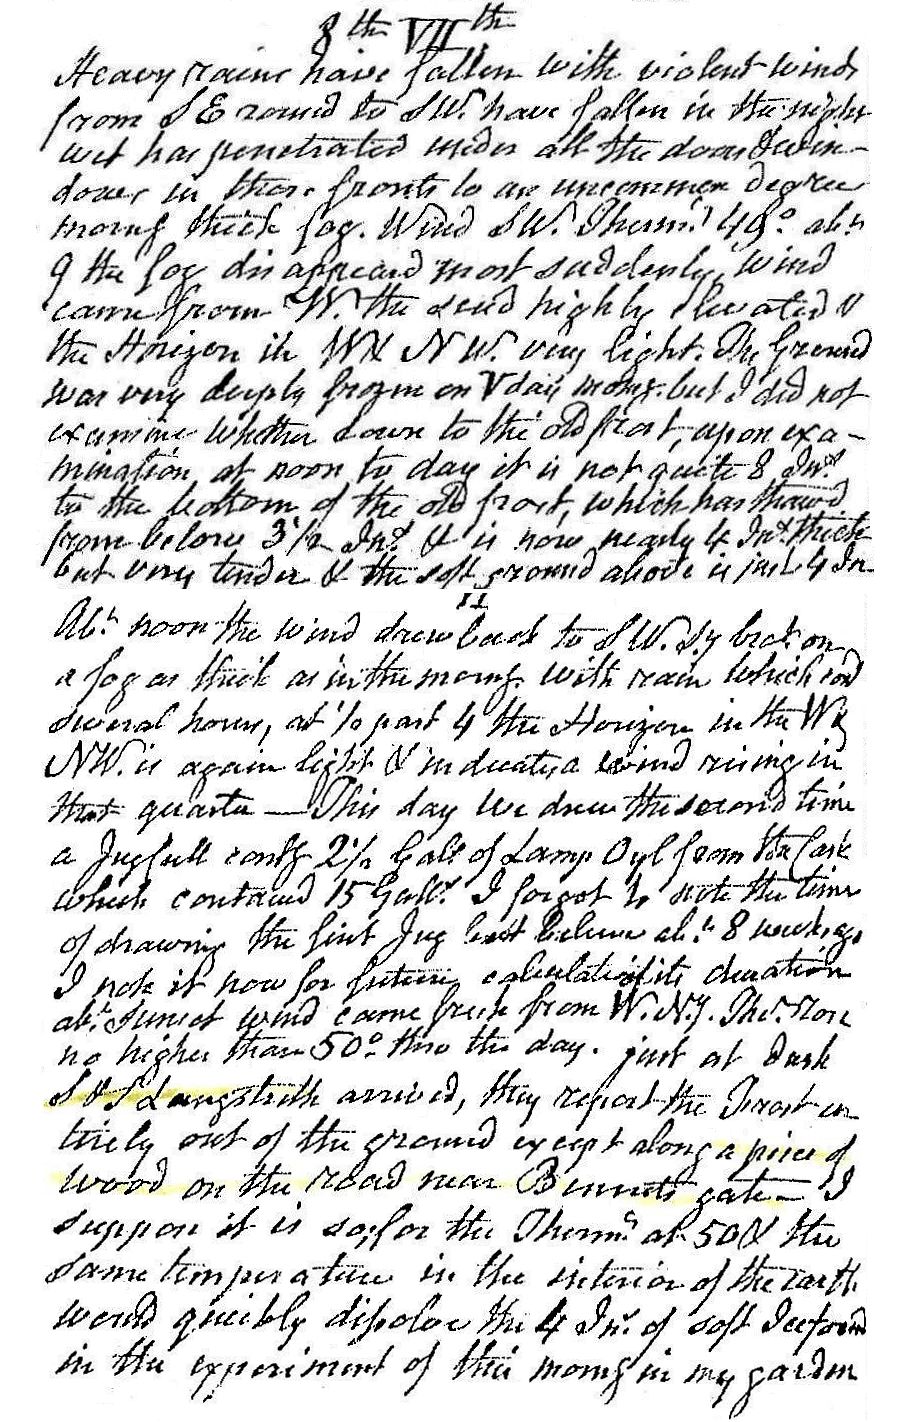 8th VIIth
Heavy rains have fallen with violent winds
from S E round to SW. have fallen in the night
wet has penetrated under all the doors & win-
dows in these fronts to an uncommon degree
morng thick fog. Wind SW. Thermr. 49° abt
9 the fog disappeared most suddenly, wind
came from W. the scud highly elevated &
the Horizon in W & NW. very light. The Ground
was very deeply frozen on V day morng. but I did not
examine whether down to the old frost, upon exa-
mination at noon to day it is not quite 8 Ins.
to the bottom of the old frost, which has thawd
from below 3 1/2 Ins. & is now nearly 4 Ins. thick
but very tender & the soft ground above is just 4 In
Abt. noon the wind drew back to SW. Sy brot. on
a fog as thick as in the morng. with rain which
several hours, at 1/2 past 4 the Horizon in the W &
NW. is again light & indicates a wind rising in
that quarter — This day we drew the second time
a Jug full contg 2 1/2 Galls of Lamp Oyl from the Cask
which contained 15 Galls. I forgot to note the time
of drawing the first Jug but believe abt. 8 weeks ago
I note it now for future calculation of its duration
abt. Sunset wind came fresh from W. Ny. Ther. rose
no higher than 50° thro the day. just at dusk
S & S Langstroth arrived, they report the Frost en
tirely out of the ground except along a piece of
wood on the road near Bennets gate — I
suppose it is so, for the Thermr. at 50 & the
same temperature in the interior of the earth
would quickly dissolve the 4 Ins. of soft Ice found
in the experiment of this morng in my garden